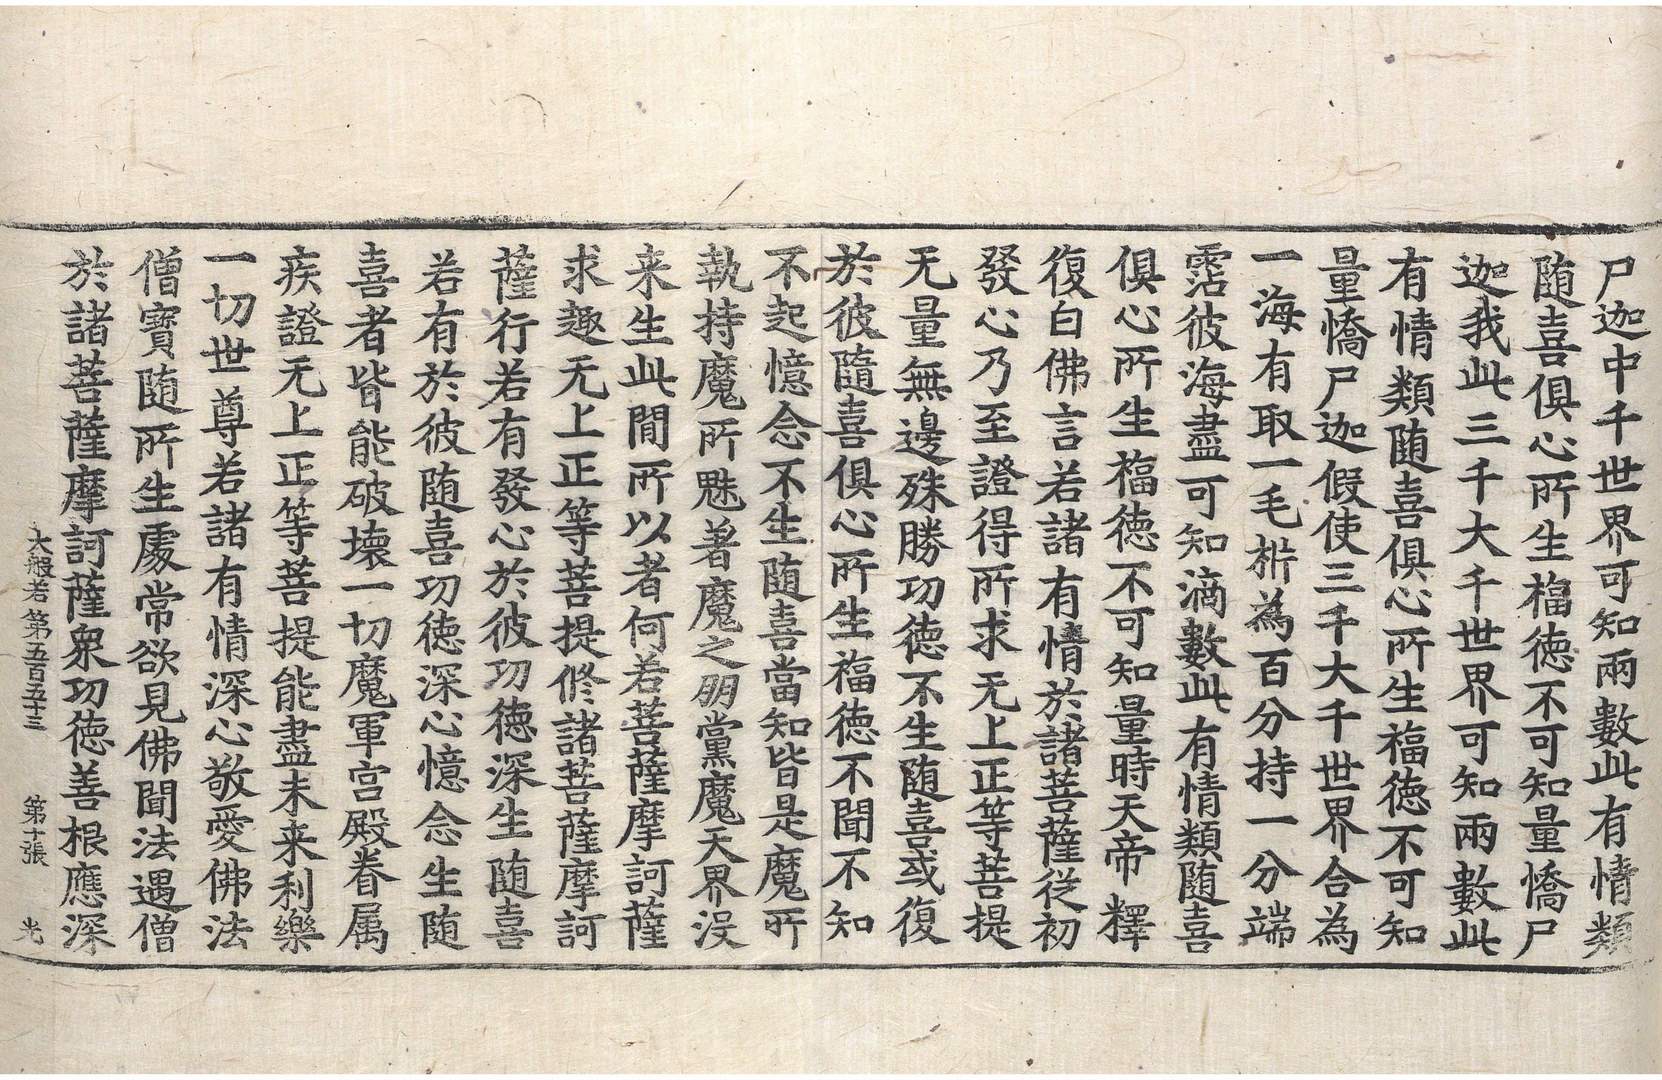 尸迦中千世界可知兩數此有情類
随喜俱心所生福德不可知量憍尸
迦我此三千大千世界可知兩數此
有情類随喜俱心所生福德不可知
量憍尸迦假使三千大千世界合為
一海有取一毛枿為百分持一分端
霑彼海盡可知滴數此有情類随喜
俱心所生福德不可知量時天帝釋
復白佛言若諸有情於諸菩薩從初
發心乃至證得所求无上正等菩提
无量無邊殊勝功德不生随喜或復
於彼隨喜俱心所生福德不聞不知
不起憶念不生随喜當知皆是魔所
執持魔所魅著魔之朋黨魔天界没
来生此間所以者何若菩薩摩訶薩
求趣无上正等菩提修諸菩薩摩訶
薩行若有發心於彼功德深生随喜
若有於彼随喜功德深心憶念生随
喜者皆能破壞一切魔軍宫殿眷属
疾證无上正等菩提能盡未来利樂
一切世尊若諸有情深心敬愛佛法
僧寶随所生處常欲見佛聞法遇僧
於諸菩薩摩訶薩衆功德善根應深
大般若第五百五十三 第十張 光